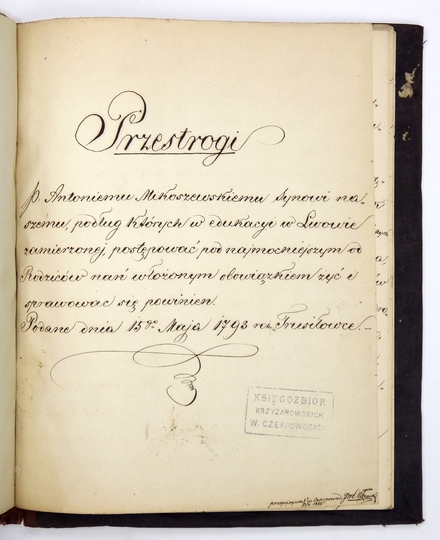 Przestrogi
P. Antoniemu Mikoszewskiemu Synowi na,
szemu, podług których w edukacyi w Lwowie
zamierzonej, postępować pod najmocniejszym od
Rodziców nań włożonym obowiązkiem żyć i
sprawować się powinien.
Podane dnia 15go Maja 1793 w Trusiłowce.
KSIĘGOZBIOR
KRZYŻANOWSKICH
W. CZERPOWODACH